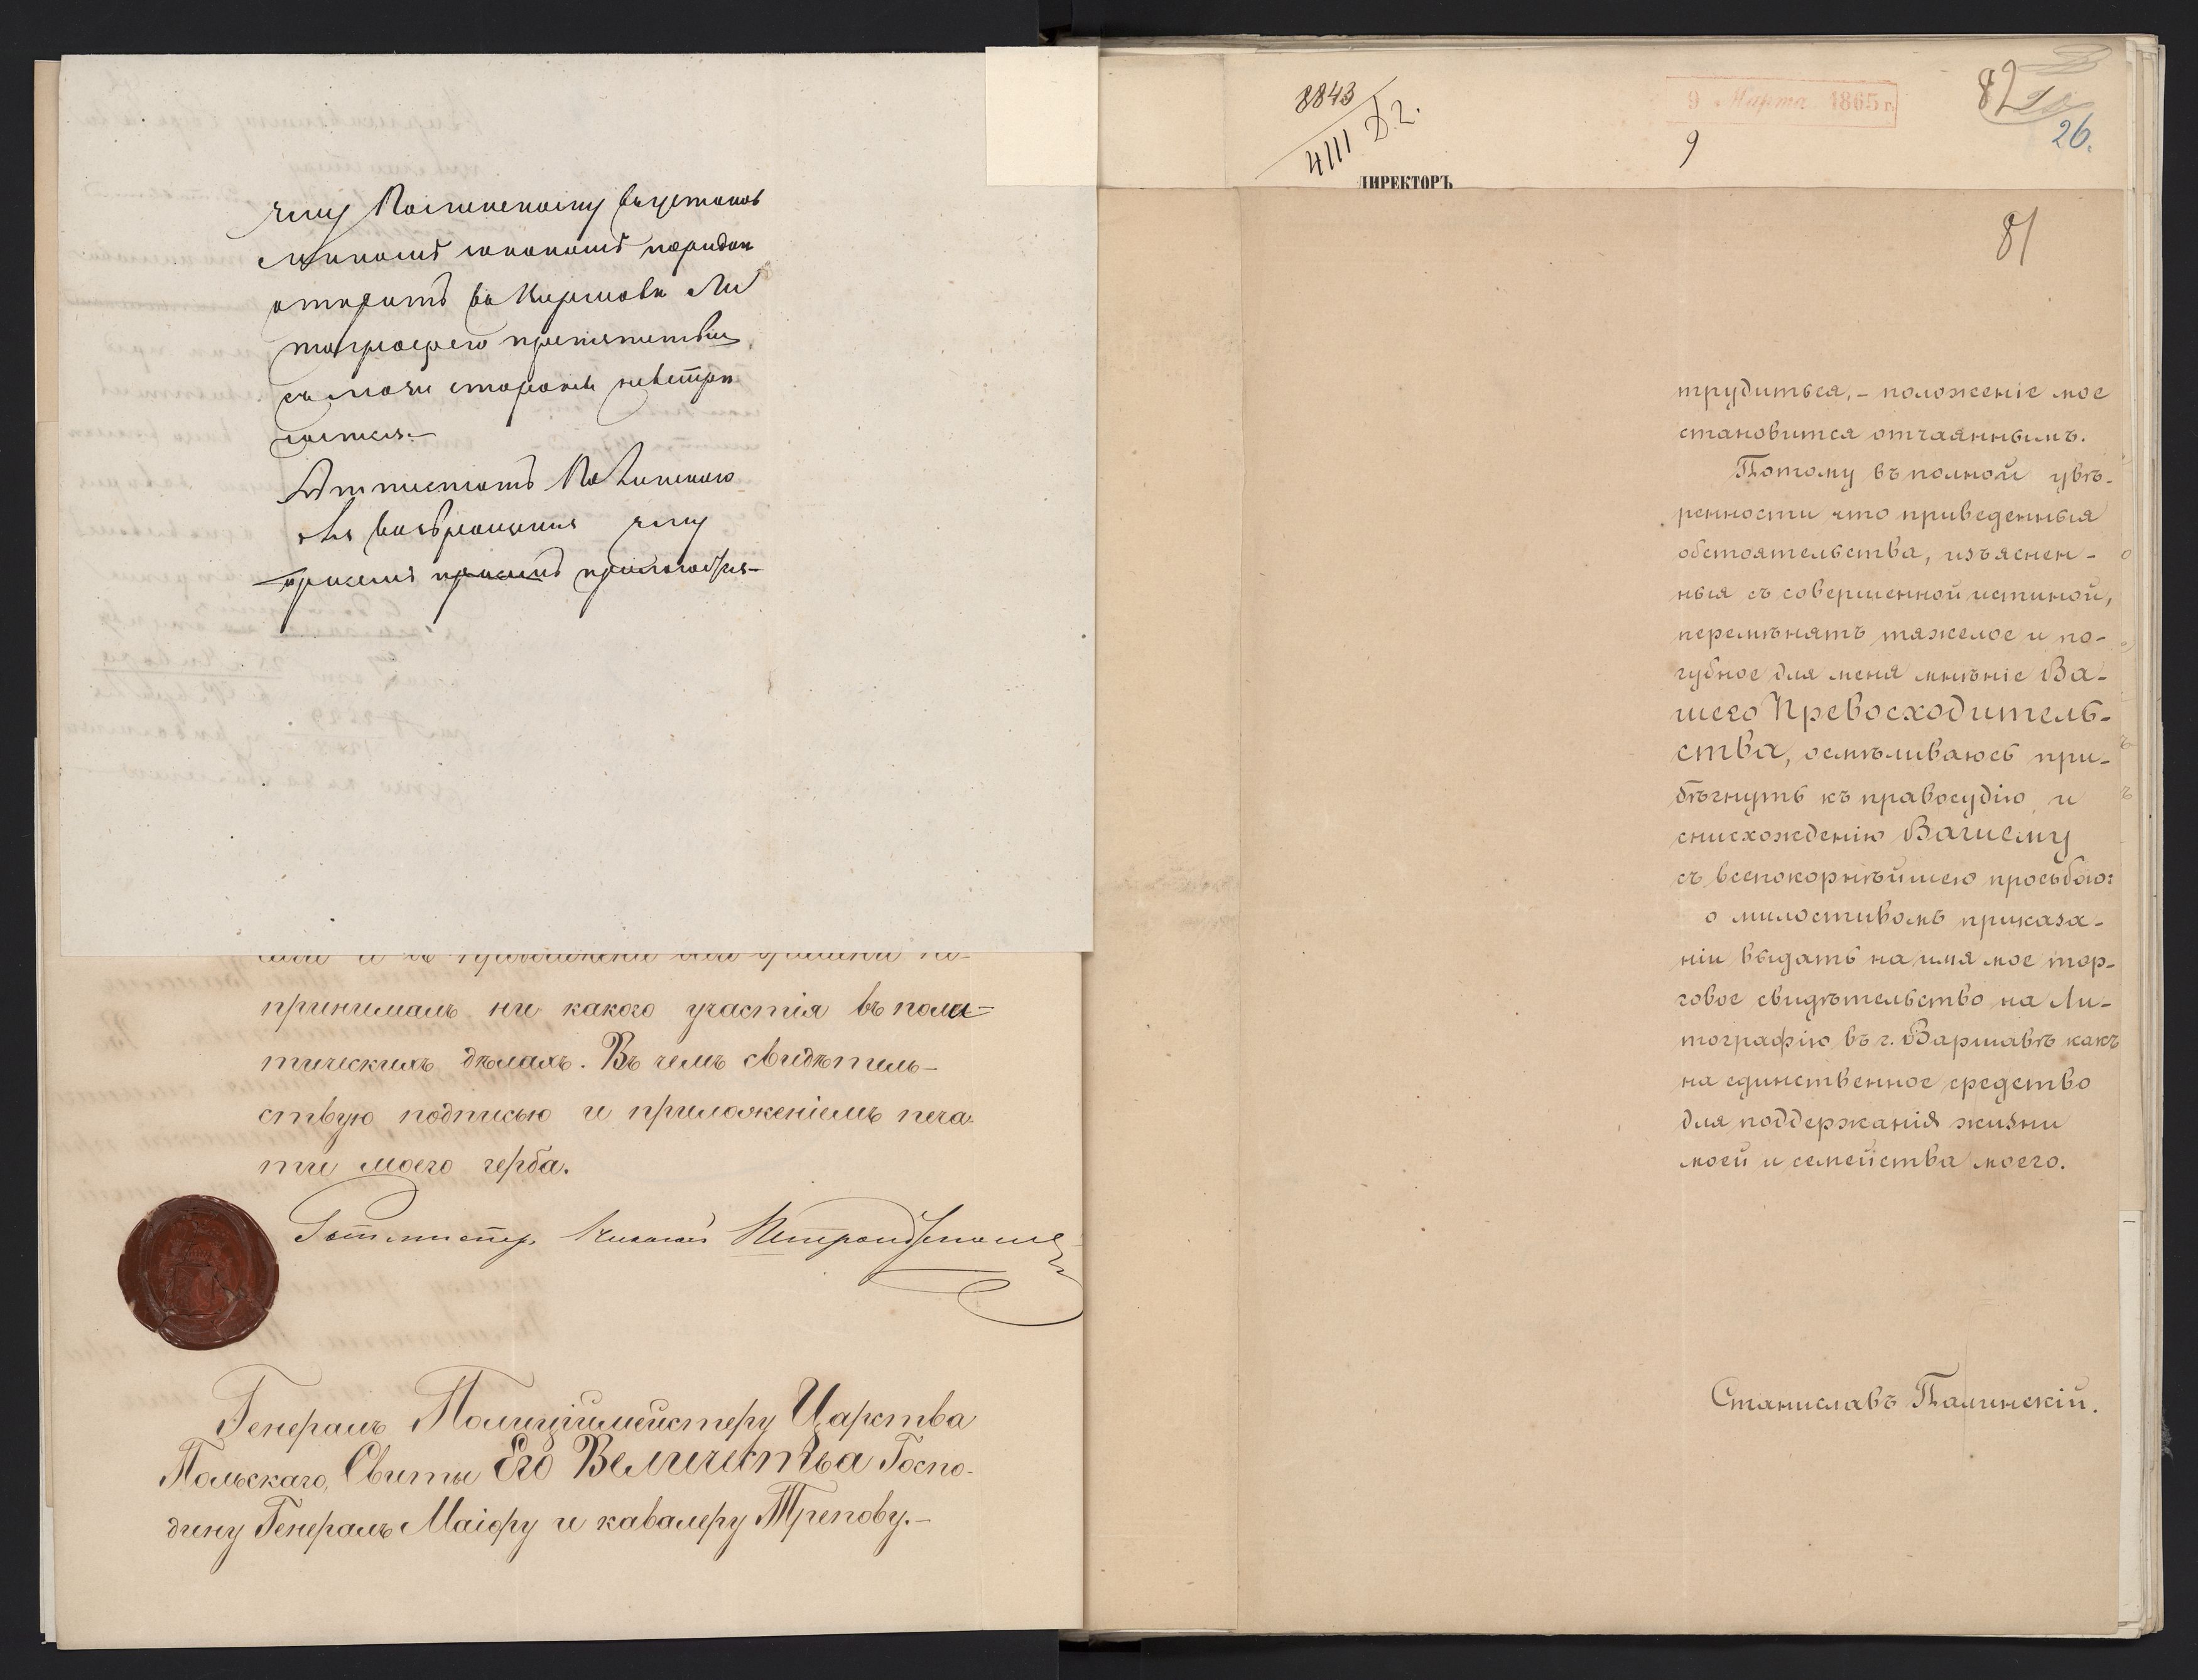 открыть въ Варшавѣ Ли
тографію препятствія
съ моей стороны невстрѣ
чается.
Аттестатъ Палинскаго
для возвращенія ему
при семъ прилагается
принималъ ни какого участія въ поли-
тическихъ дѣлахъ. Въ чемъ свидѣтель-
ствую подписью и приложеніемъ печа-
ти моего герба.
Ротмистръ
Генералъ Полиціймейстеру Царства
Польскаго, Свиты Его Величества Госпо-
дину Генералъ Маіору и кавалеру Трепову.-
8843
4111 Д.2.
ДИРЕКТОРЪ
9 Марта 1865 г.
9
82
26.
81
трудиться,- положеніе мое
становится отчаяннымъ.
Потому въ полной увѣ-
ренности что приведенныя
обстоятельства, изъяснен-
ныя съ совершенной истиной,
перемѣнятъ тяжелое и по-
губное для меня мнѣніе Ва-
шего Превосходитель-
ства, осмѣливаюсь при-
бѣгнуть къ правосудію и
снисхожденію Вашему
съ всепокорнѣйшею просьбою:
о милостивомъ приказа-
ніи выдать на имя мое тор-
говое свидѣтельство на Ли-
тографію въ г. Варшавѣ какъ
на единственное средство
для поддержанія жизни
моей и семейства моего.
Станиславъ Палинскій.